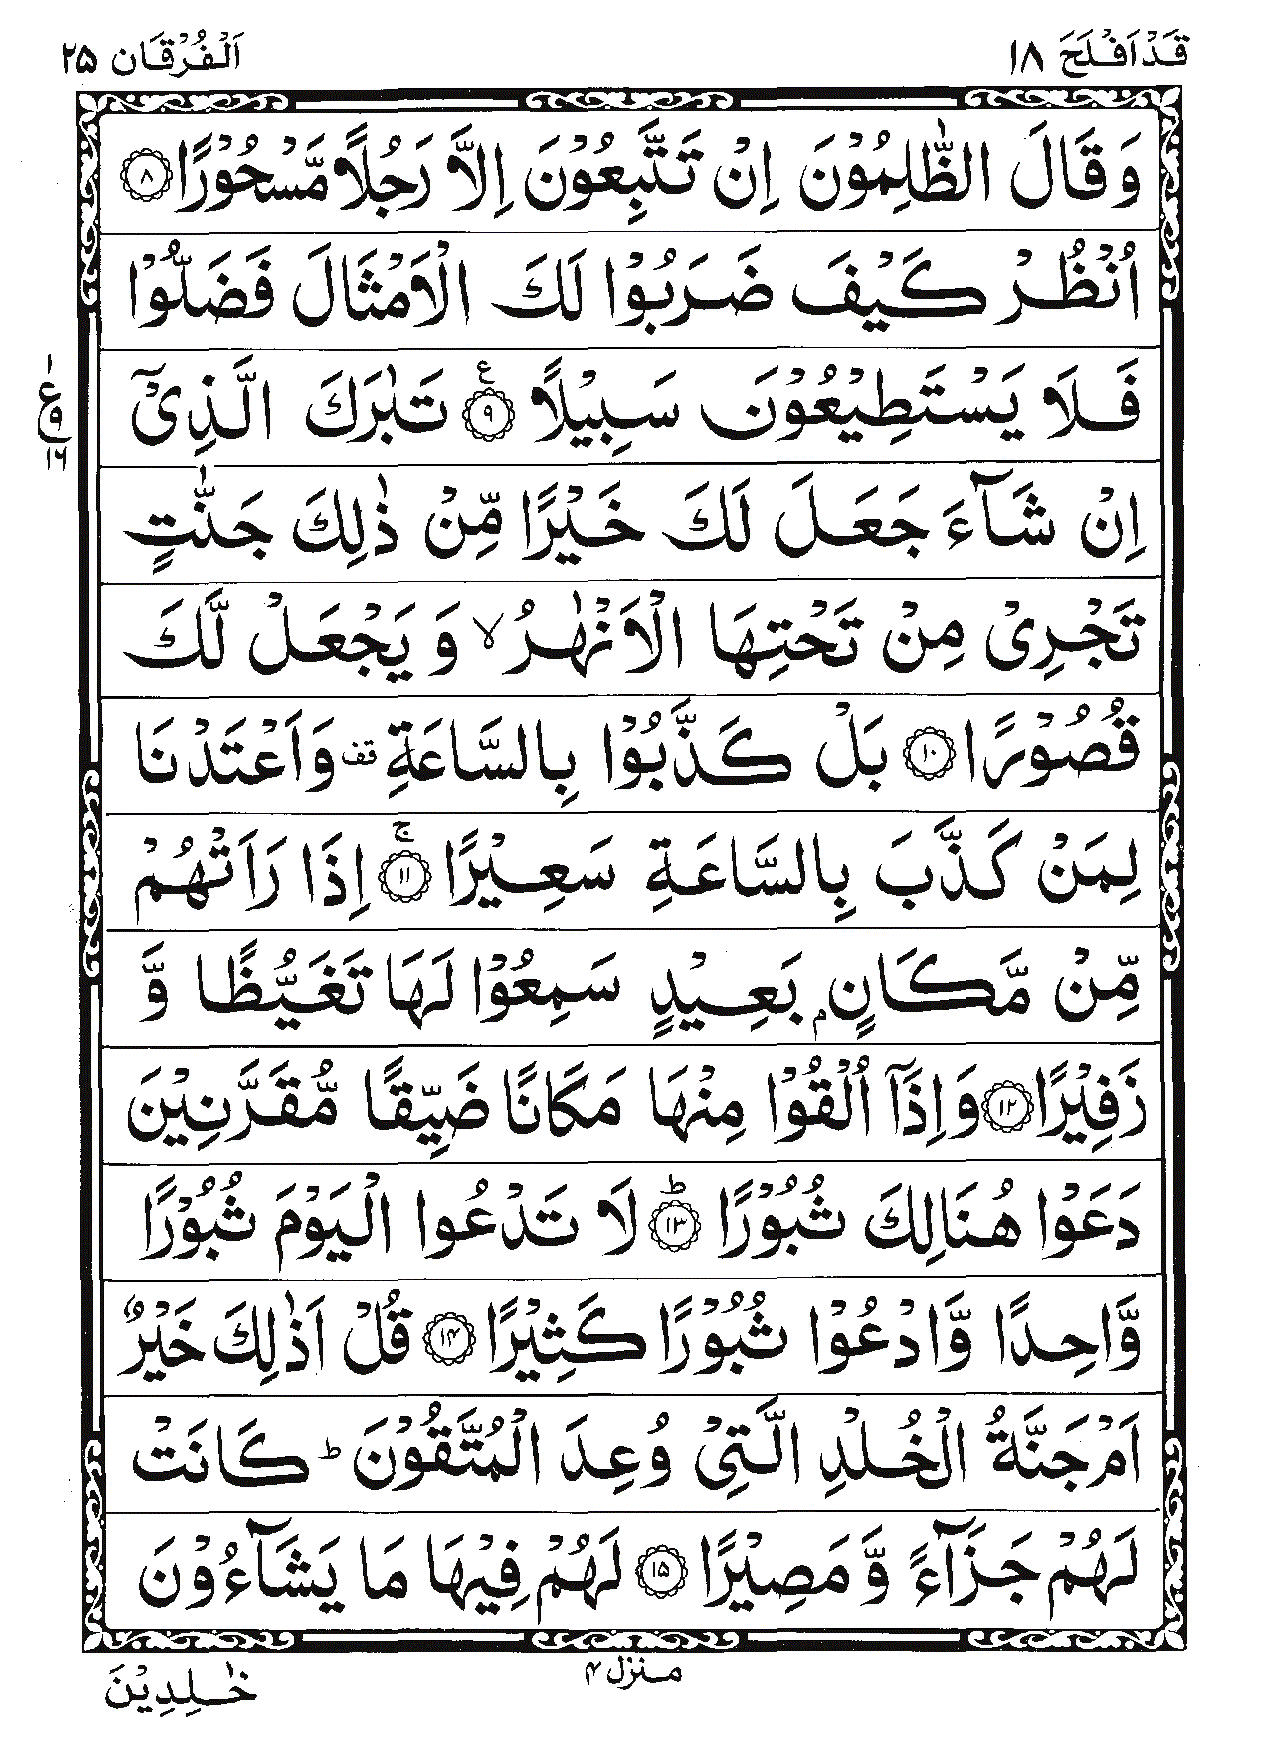 قَدْ اَفْلَحَ ١٨
اَلْفُرْقَان ٢٥
وَقَالَ الظّٰلِمُوْنَ اِنْ تَتَّبِعُوْنَ اِلَّا رَجُلًا مَّسْحُوْرًا ۝٨
اُنْظُرْ كَيْفَ ضَرَبُوْا لَكَ الْاَمْثَالَ فَضَلُّوْا
فَلَا يَسْتَطِيْعُوْنَ سَبِيْلًا ۝٩ ع تَبٰرَكَ الَّذِيْٓ
١ ع ٩ ١٦
اِنْ شَآءَ جَعَلَ لَكَ خَيْرًا مِّنْ ذٰلِكَ جَنّٰتٍ
تَجْرِيْ مِنْ تَحْتِهَا الْاَنْهٰرُ ۙ وَيَجْعَلْ لَّكَ
قُصُوْرًا ۝١٠ بَلْ كَذَّبُوْا بِالسَّاعَةِ قف وَاَعْتَدْنَا
لِمَنْ كَذَّبَ بِالسَّاعَةِ سَعِيْرًا ۝١١ ۚ اِذَا رَاَتْهُمْ
مِّنْ مَّكَانٍۭ بَعِيْدٍ سَمِعُوْا لَهَا تَغَيُّظًا وَّ
زَفِيْرًا ۝١٢ وَاِذَآ اُلْقُوْا مِنْهَا مَكَانًا ضَيِّقًا مُّقَرَّنِيْنَ
دَعَوْا هُنَالِكَ ثُبُوْرًا ۝١٣ ؕ لَا تَدْعُوا الْيَوْمَ ثُبُوْرًا
وَّاحِدًا وَّادْعُوْا ثُبُوْرًا كَثِيْرًا ۝١٤ قُلْ اَذٰلِكَ خَيْرٌ
اَمْ جَنَّةُ الْخُلْدِ الَّتِيْ وُعِدَ الْمُتَّقُوْنَ ؕ كَانَتْ
لَهُمْ جَزَآءً وَّمَصِيْرًا ۝١٥ لَهُمْ فِيْهَا مَا يَشَآءُوْنَ
منزل ٤
خٰلِدِيْنَ